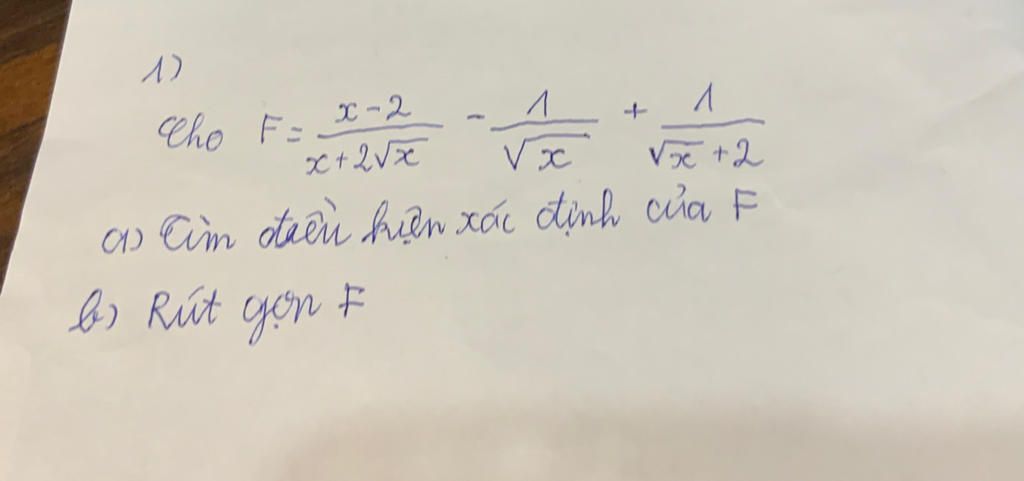 1)
Cho F = \frac{x-2}{x+2\sqrt{x}} - \frac{1}{\sqrt{x}} + \frac{1}{\sqrt{x}+2}
a) Tìm điều kiện xác định của F
b) Rút gọn F